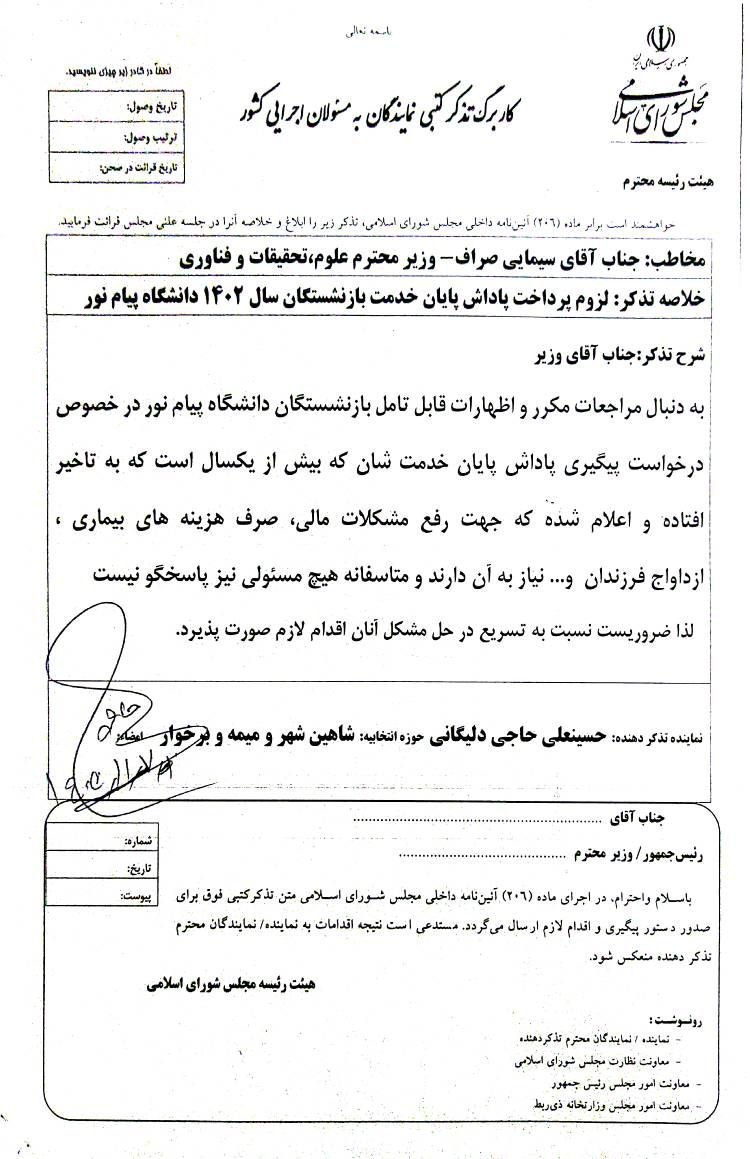 باسمه تعالی
جمهوری اسلامی ایران
مجلس شورای اسلامی
کاربرگ تذکر کتبی نمایندگان به مسئولان اجرایی کشور
لطفاً در کادر زیر چیزی ننویسید.
تاریخ وصول:
ترتیب وصول:
تاریخ قرائت در صحن:
هیئت رئیسه محترم
خواهشمند است برابر ماده (۲۰۶) آئین‌نامه داخلی مجلس شورای اسلامی، تذکر زیر را ابلاغ و خلاصه آنرا در جلسه علنی مجلس قرائت فرمایید.
مخاطب: جناب آقای سیمایی صراف– وزیر محترم علوم،تحقیقات و فناوری
خلاصه تذکر: لزوم پرداخت پاداش پایان خدمت بازنشستگان سال ۱۴۰۲ دانشگاه پیام نور
شرح تذکر:جناب آقای وزیر
به دنبال مراجعات مکرر و اظهارات قابل تامل بازنشستگان دانشگاه پیام نور در خصوص
درخواست پیگیری پاداش پایان خدمت شان که بیش از یکسال است که به تاخیر
افتاده و اعلام شده که جهت رفع مشکلات مالی، صرف هزینه های بیماری ،
ازدواج فرزندان و... نیاز به آن دارند و متاسفانه هیچ مسئولی نیز پاسخگو نیست
لذا ضروریست نسبت به تسریع در حل مشکل آنان اقدام لازم صورت پذیرد.
نماینده تذکر دهنده: حسینعلی حاجی دلیگانی حوزه انتخابیه: شاهین شهر و میمه و برخوار امضاء:
جناب آقای ............................................................
رئیس‌جمهور/ وزیر محترم ..........................................
شماره:
تاریخ:
پیوست:
باسلام واحترام، در اجرای ماده (۲۰۶) آئین‌نامه داخلی مجلس شورای اسلامی متن تذکرکتبی فوق برای
صدور دستور پیگیری و اقدام لازم ارسال می‌گردد. مستدعی است نتیجه اقدامات به نماینده/ نمایندگان محترم
تذکر دهنده منعکس شود.
هیئت رئیسه مجلس شورای اسلامی
رونوشت:
- نماینده / نمایندگان محترم تذکردهنده
- معاونت نظارت مجلس شورای اسلامی
- معاونت امور مجلس رئیس جمهور
- معاونت امور مجلس وزارتخانه ذی‌ربط